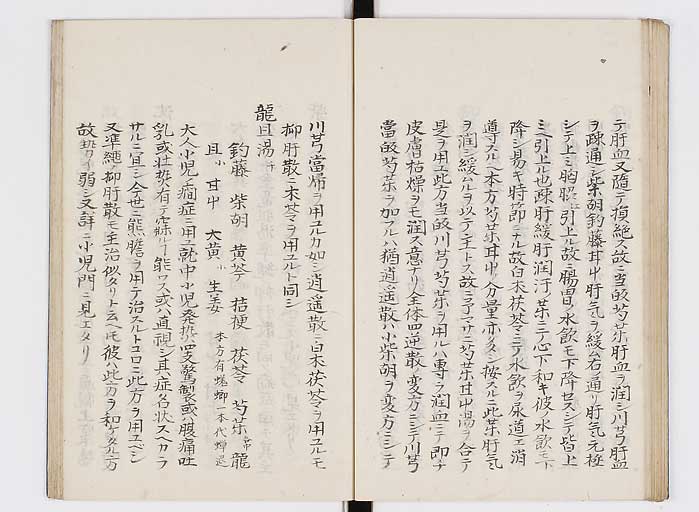 テ肝血又随テ損絶ス故ニ当皈芍茱肝血ヲ潤シ川芎肝血
ヲ疎通シ柴胡釣藤甘中肝気ヲ緩ム右ノ通リ肝気ニ元極
シテ上ミ胸膈ニ引上ル故ニ腸胃ノ水飲モ下降セスシテ皆上
ミニ引上ル也疎肝緩肝潤汙ノ茱ニテ心下和キ彼ノ水飲モ下
降シ易キ時節ニナル故白朮茯苓ニテ水飲ヲ尿道エ消
導スル也本方芍茱甘中ノ分量亦多シ按スルニ此茱肝気
ヲ潤シ緩ムルヲ以テ主トス故ニ芍茱甘中湯ヲ合テ
是ヲ用エ此方当皈川芎芍茱ヲ用ルハ専ラ潤血ニテ即ナ
皮膚枯燥ヲモ潤ス意ナリ全体四逆散ノ変方ニシテ川芎
當皈芍茱ヲ加フルハ猶逍遥散ハ小柴胡ヲ変方ニシテ
川芎當帰ヲ用ユルカ如シ逍遥散ニ白朮茯苓ヲ用ユルモ
抑肝散ニ朮苓ヲ用ユルト同シ
龍且湯
釣藤 柴胡 黄芩 桔梗 茯苓 芍茱 龍
且小 甘中 大黄小 生姜 本方有蜣螂一本代蝉退
大人小児癇症ニ用ユ就中小児発熱四支驚製或ハ腹痛吐
乳或壮熱有テ寐ル丁能ワス或ハ直視シ其症名状スヘカラ
サルニ宜シ今世ニ熊膽ヲ用テ治スルトコロニ此方ヲ用ユベシ
又準縄ノ抑肝散モ主治似タリト云ヘ𪜈彼ハ此方ヲ和ケタル方
故
弱シ又詳ニ小児門ニ見エタリ